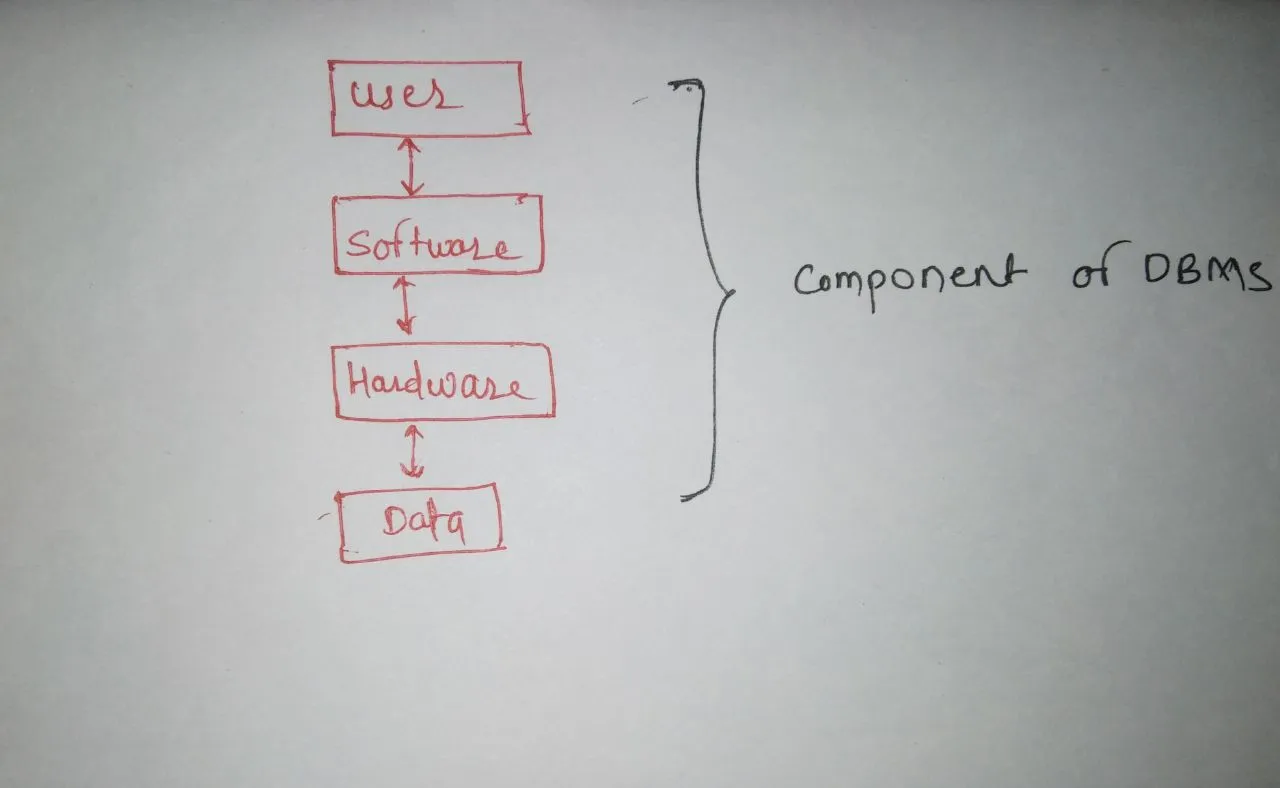 User
Software
Hardware
Data
Component of DBMS